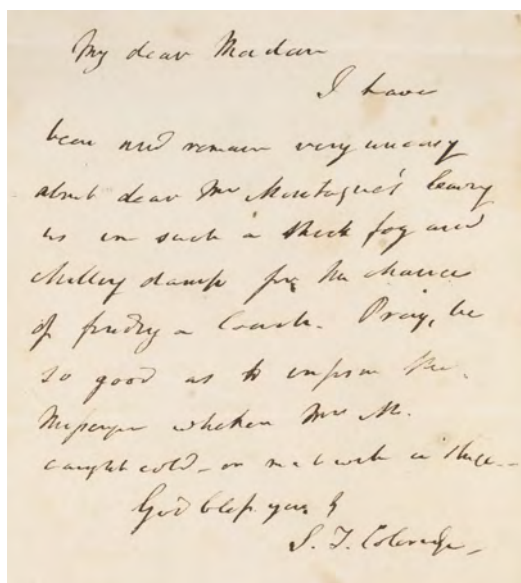 My dear Madam
I have
been and remain very uneasy
about dear Mrs Montague's leaving
us in such a thick fog and
chilling damp for the chance
of finding a Coach. Pray, be
so good as to inform the
Messenger whether Mrs M.
caught cold – or met with a Stage –
God bless you &
S. T. Coleridge –